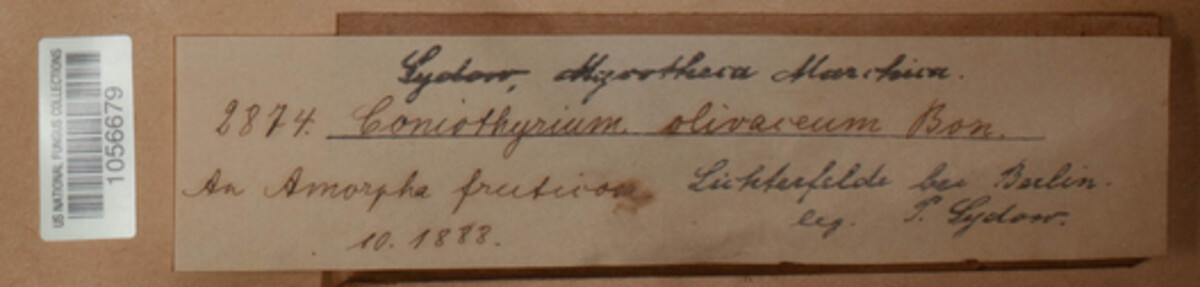 US NATIONAL FUNGUS COLLECTIONS
1056679
Sydow, Mycotheca Marchica.
2874. Coniothyrium olivaceum Bon.
An Amorpha fruticosa
10. 1888.
Lichterfelde bei Berlin.
leg. P. Sydow.